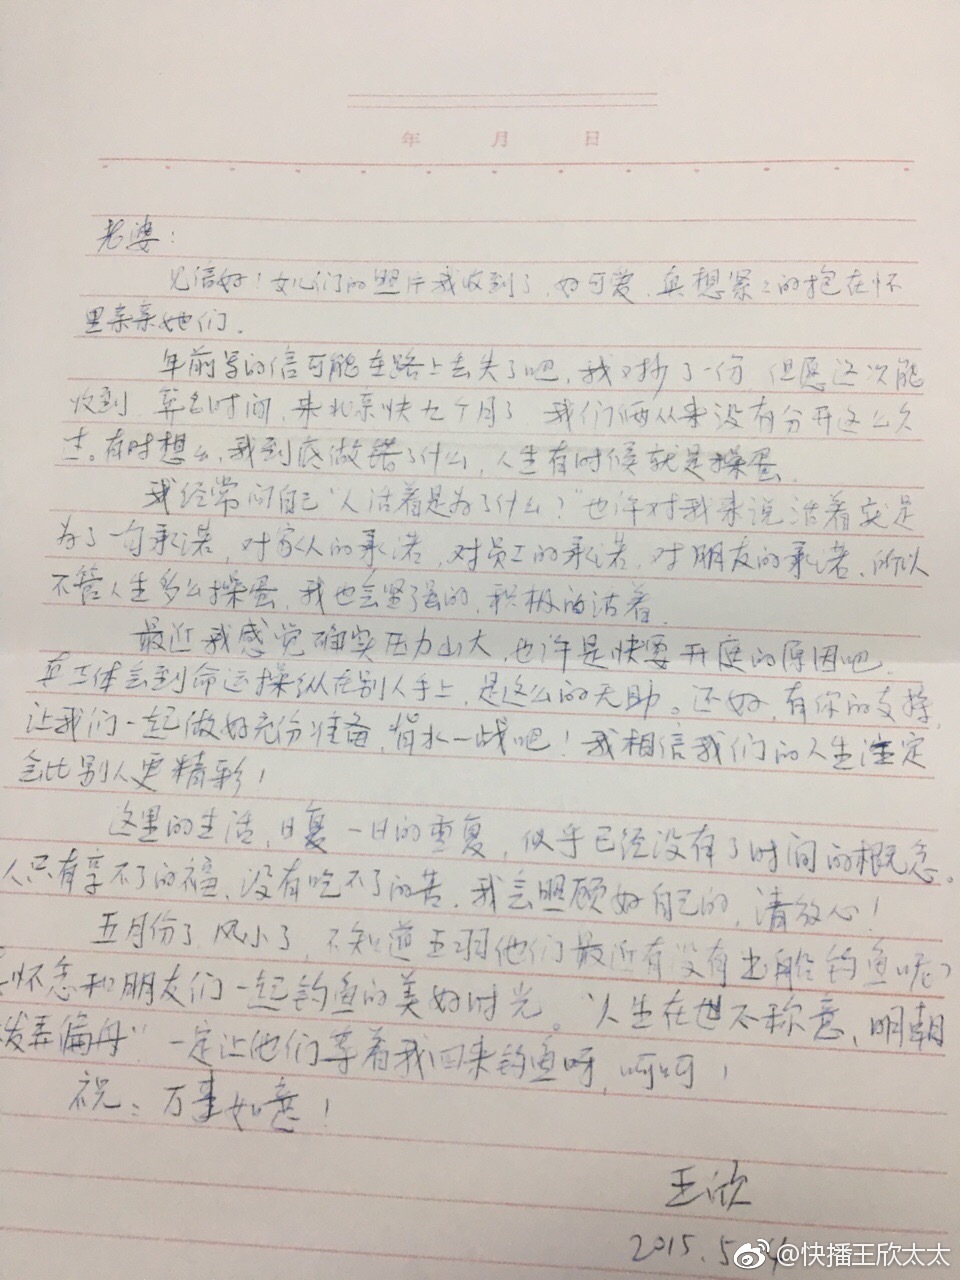 年 月 日
老婆：
见信好！女儿们的照片我收到了，好可爱，真想紧紧的抱在怀
里亲亲她们。
年前写的信可能在路上丢失了吧，我又抄了一份，但愿这次能
收到。算名时间，来北京快九个月了，我们俩从来没有分开这么久
过。有时想想，我到底做错了什么，人生有时候就是操蛋。
我经常问自己“人活着是为了什么？”也许对我来说活着就是
为了一句承诺，对家人的承诺，对员工的承诺，对朋友的承诺，所以
不管人生多么操蛋，我也会坚强的，积极的活着。
最近我感觉确实压力山大，也许是快要开庭的原因吧，
真正体会到命运操纵在别人手上，是这么的无助。还好，有你的支持，
让我们一起做好充份准备，背水一战吧！我相信我们的人生注定
会比别人更精彩！
这里的生活，日复一日的重复，似乎已经没有了时间的概念。
人只有享不了的福，没有吃不了的苦，我会照顾好自己的，请放心！
五月份了，风小了，不知道五羽他们最近有没有出船钓鱼呢？
怀念和朋友们一起钓鱼的美好时光。“人生在世不称意，明朝
发弄偏舟”一定让他们等着我回来钓鱼呀，呵呵！
祝：万事如意！
王欣
2015.5.4
@快播王欣太太